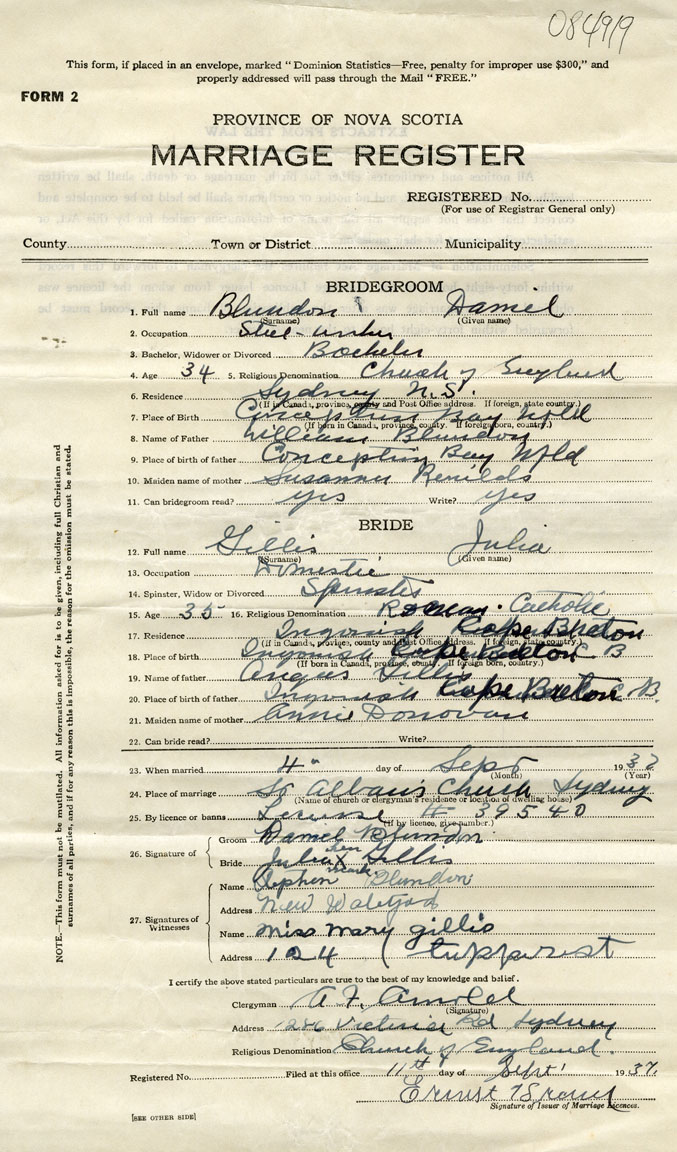 084919
This form, if placed in an envelope, marked “Dominion Statistics—Free, penalty for improper use $300,” and
properly addressed will pass through the Mail “FREE.”
FORM 2
PROVINCE OF NOVA SCOTIA
MARRIAGE REGISTER
REGISTERED No.
(For use of Registrar General only)
County Town or District Municipality
BRIDEGROOM
1. Full name Blundon Daniel
(Surname) (Given name)
2. Occupation Steel-
3. Bachelor, Widower or Divorced Bachelor
4. Age 34 5. Religious Denomination Church of England
6. Residence Sydney N.S.
(If in Canada, province, county and Post Office address. If foreign, state country.)
7. Place of Birth Conception Bay Nfld
(If born in Canada, province, county. If foreign born, country.)
8. Name of Father William Blundon
9. Place of birth of father Conception Bay Nfld
10. Maiden name of mother Susanna
11. Can bridegroom read? yes Write? yes
BRIDE
12. Full name Gillis Julia
(Surname) (Given name)
13. Occupation Domestic
14. Spinster, Widow or Divorced Spinster
15. Age 35 16. Religious Denomination Roman Catholic
17. Residence Ingonish Cape Breton
(If in Canada, province, county and Post Office address. If foreign, state country.)
18. Place of birth Ingonish Cape Breton C B
(If born in Canada, province, county. If foreign born, country.)
19. Name of father Angus Gillis
20. Place of birth of father Ingonish Cape Breton C B.
21. Maiden name of mother Annie Donovan
22. Can bride read? Write?
23. When married 4" day of Sept 1937
(Month) (Year)
24. Place of marriage St Albans Church Sydney
(Name of church or clergyman's residence or location of dwelling house)
25. By licence or banns License # 39540
(If by licence, give number.)
26. Signature of Groom Daniel Blundon
Bride Julia her X mark Gillis
27. Signatures of Witnesses Name Stephen Blundon
Address New Waterford
Name miss mary gillis
Address 124 tupper st
I certify the above stated particulars are true to the best of my knowledge and belief.
Clergyman A. F. Arnold
(Signature)
Address 286 Victoria Rd Sydney
Religious Denomination Church of England.
Registered No. Filed at this office 11th day of Sept 1937.
Ernest
Signature of Issuer of Marriage Licences.
[SEE OTHER SIDE]
NOTE.—This form must not be mutilated. All information asked for is to be given, including full Christian and
surnames of all parties, and if for any reason this is impossible, the reason for the omission must be stated.